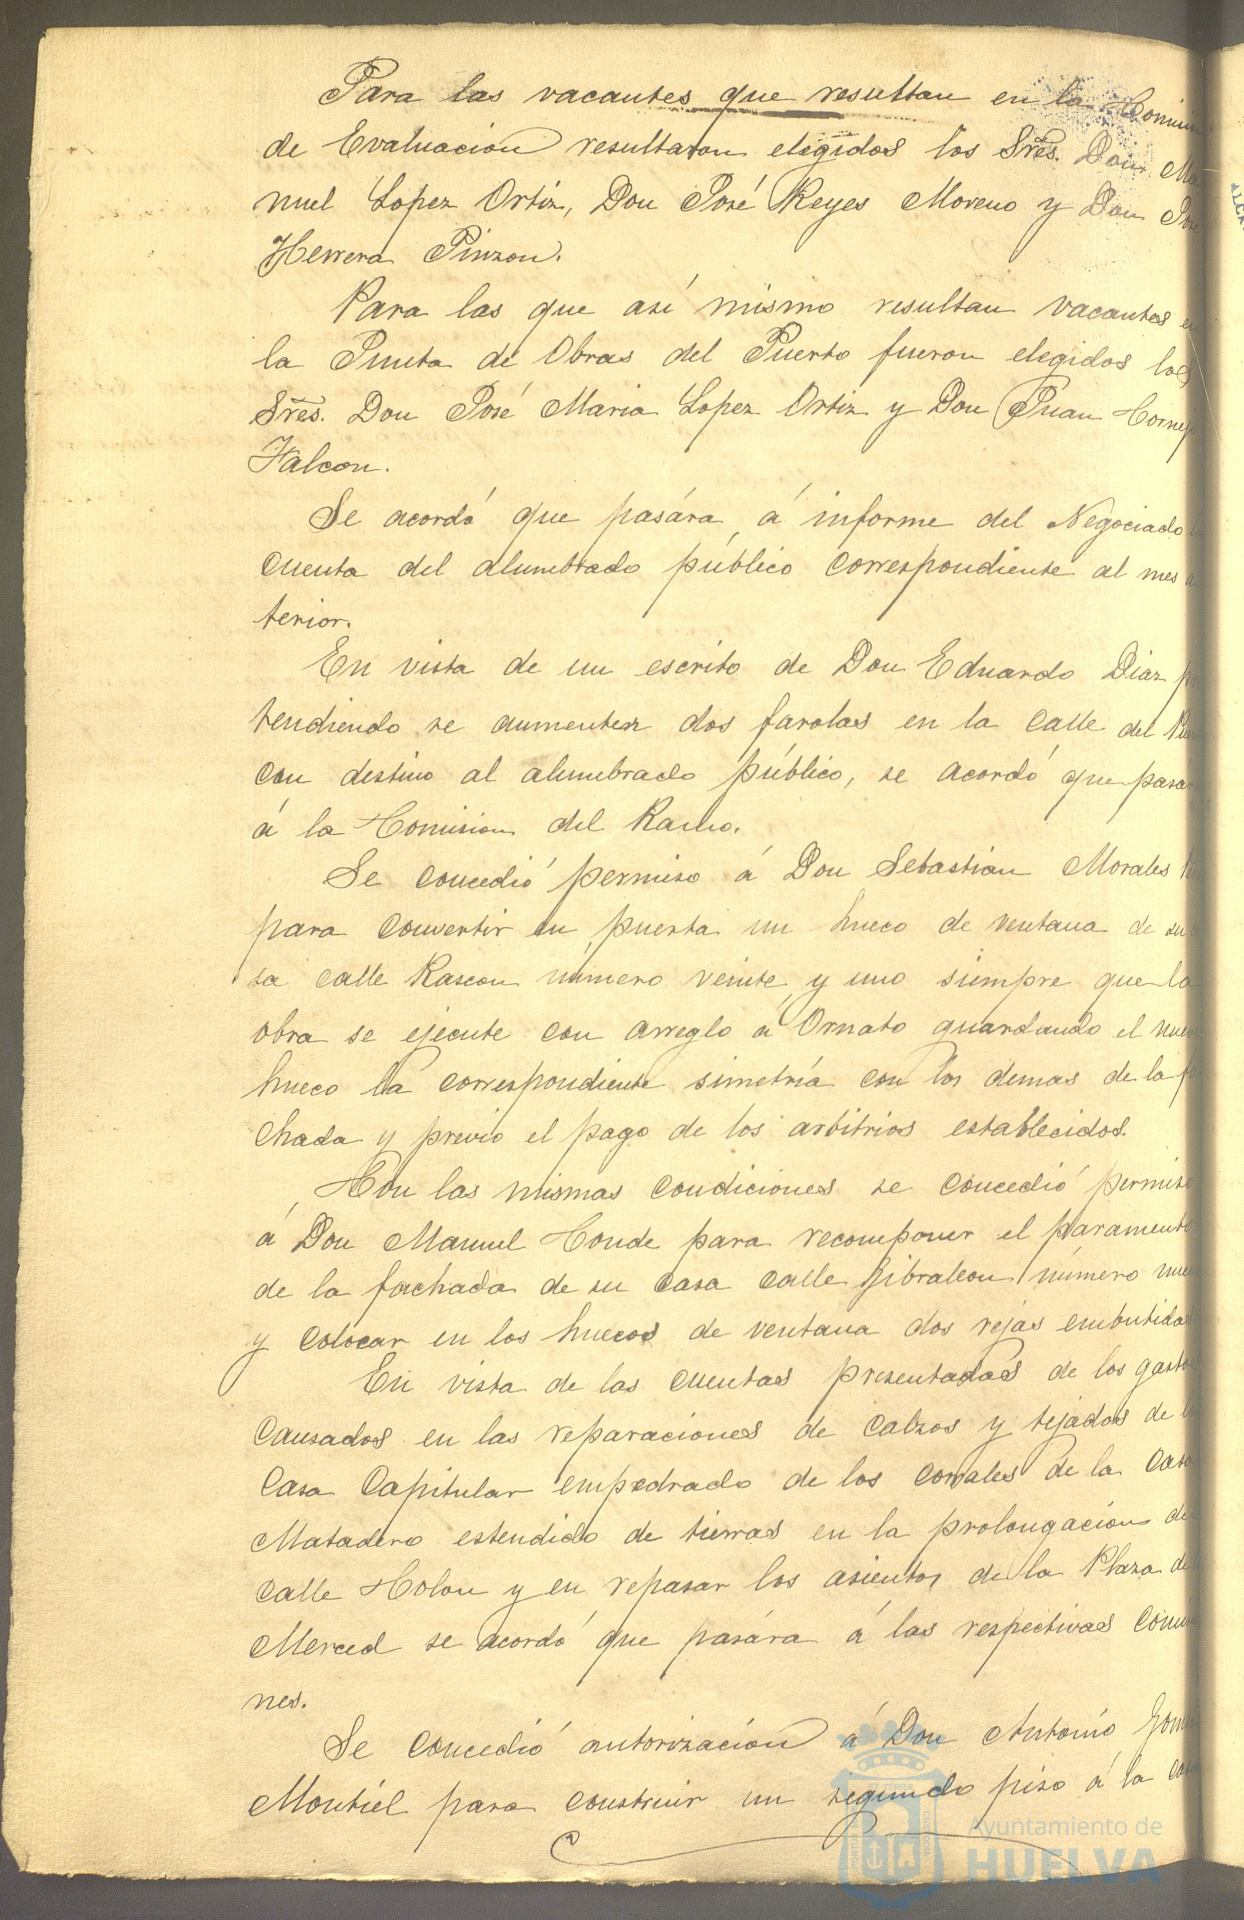 Para las vacantes que resultan en la Comisi
de Evaluacion resultaron elegidos los Sres. Don Ma
nuel Lopez Ortiz, Don José Reyes Moreno y Don José
Herrera Pinzon.
Para las que asi mismo resultan vacantes en
la Junta de Obras del Puerto fueron elegidos los
Sres. Don José Maria Lopez Ortiz y Don Juan Cornejo
Falcon.
Se acordó que pasára á informe del Negociado la
cuenta del alumbrado público correspondiente al mes an
terior.
En vista de un escrito de Don Eduardo Diaz pre
tendiendo se aumenten dos farolas en la calle del
con destino al alumbrado público, se acordó que pasara
á la Comision del Ramo.
Se concedió permiso á Don Sebastián Morales
para convertir en puerta un hueco de ventana de su ca
sa calle Rascon número veinte y uno siempre que la
obra se ejecute con arreglo á Ornato guardando el nuevo
hueco la correspondiente simetría con los demas de la fa
chada y previo el pago de los arbitrios establecidos.
Con las mismas condiciones se concedió permiso
á Don Manuel Conde para recomponer el paramento
de la fachada de su casa calle Gibraleon número nueve
y colocar en los huecos de ventana dos rejas embutidas
En vista de las cuentas presentadas de los gastos
causados en las reparaciones de calzos y tejados de la
Casa Capitular empedrado de los corrales de la Casa
Matadero estendido de tierras en la prolongacion de
calle Colon y en repasar los asientos de la Plaza de
Merced se acordó que pasára á las respectivas comisio
nes.
Se concedió autorización á Don Antonio
Montiel para construir un segundo piso á la casa
Ayuntamiento de
HUELVA